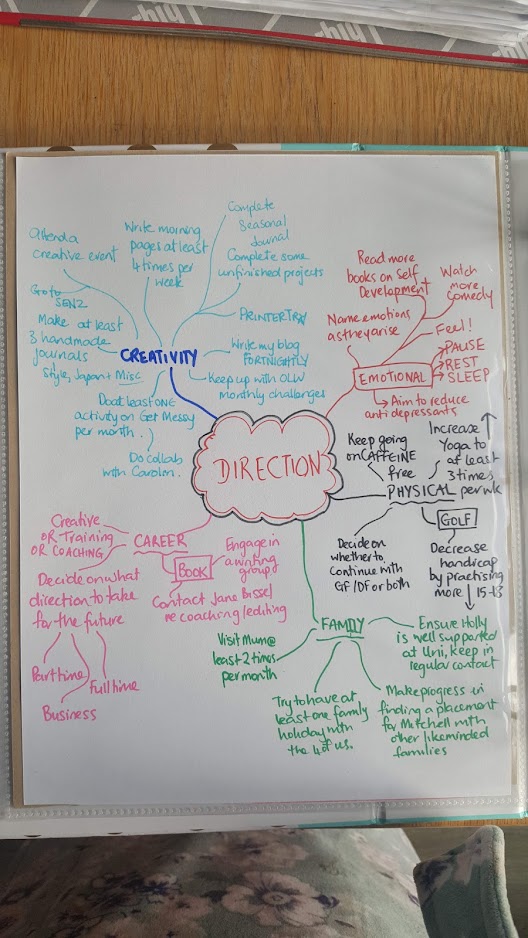 Attend a
creative event
Write morning
pages at least
4 times per
week
Complete
Seasonal
Journal
Complete some
unfinished projects
Go to
SENZ
PRINTER TRAY
Make at least
3 handmade
journals
Style, Japan + Misc
CREATIVITY
Write my blog
FORTNIGHTLY
Keep up with OLW
monthly challenges
Do at least ONE
activity on Get Messy
per month.
Do collab
with Carolm.
Read more
books on Self
Development
Watch
more
comedy
Name emotions
as they arise
Feel!
PAUSE
REST
SLEEP
EMOTIONAL
Aim to reduce
anti depressants
DIRECTION
Keep going
on CAFFEINE
free
Increase
Yoga to
at least
3 times
per wk
PHYSICAL
GOLF
Decide on
whether to
continue with
GF/DF or both
Decrease
handicap
by practising
more
15-13
Creative
OR Training
OR COACHING
CAREER
BOOK
Engage in
a writing
group
Contact Jane Bissel
re coaching/editing
Decide on what
direction to take
for the future
Part time
Full time
Business
FAMILY
Visit Mum @
least 2 times
per month
Ensure Holly
is well supported
at Uni, keep in
regular contact
Try to have at
least one family
holiday with
the 4 of us.
Make progress in
finding a placement
for Mitchell with
other likeminded
families